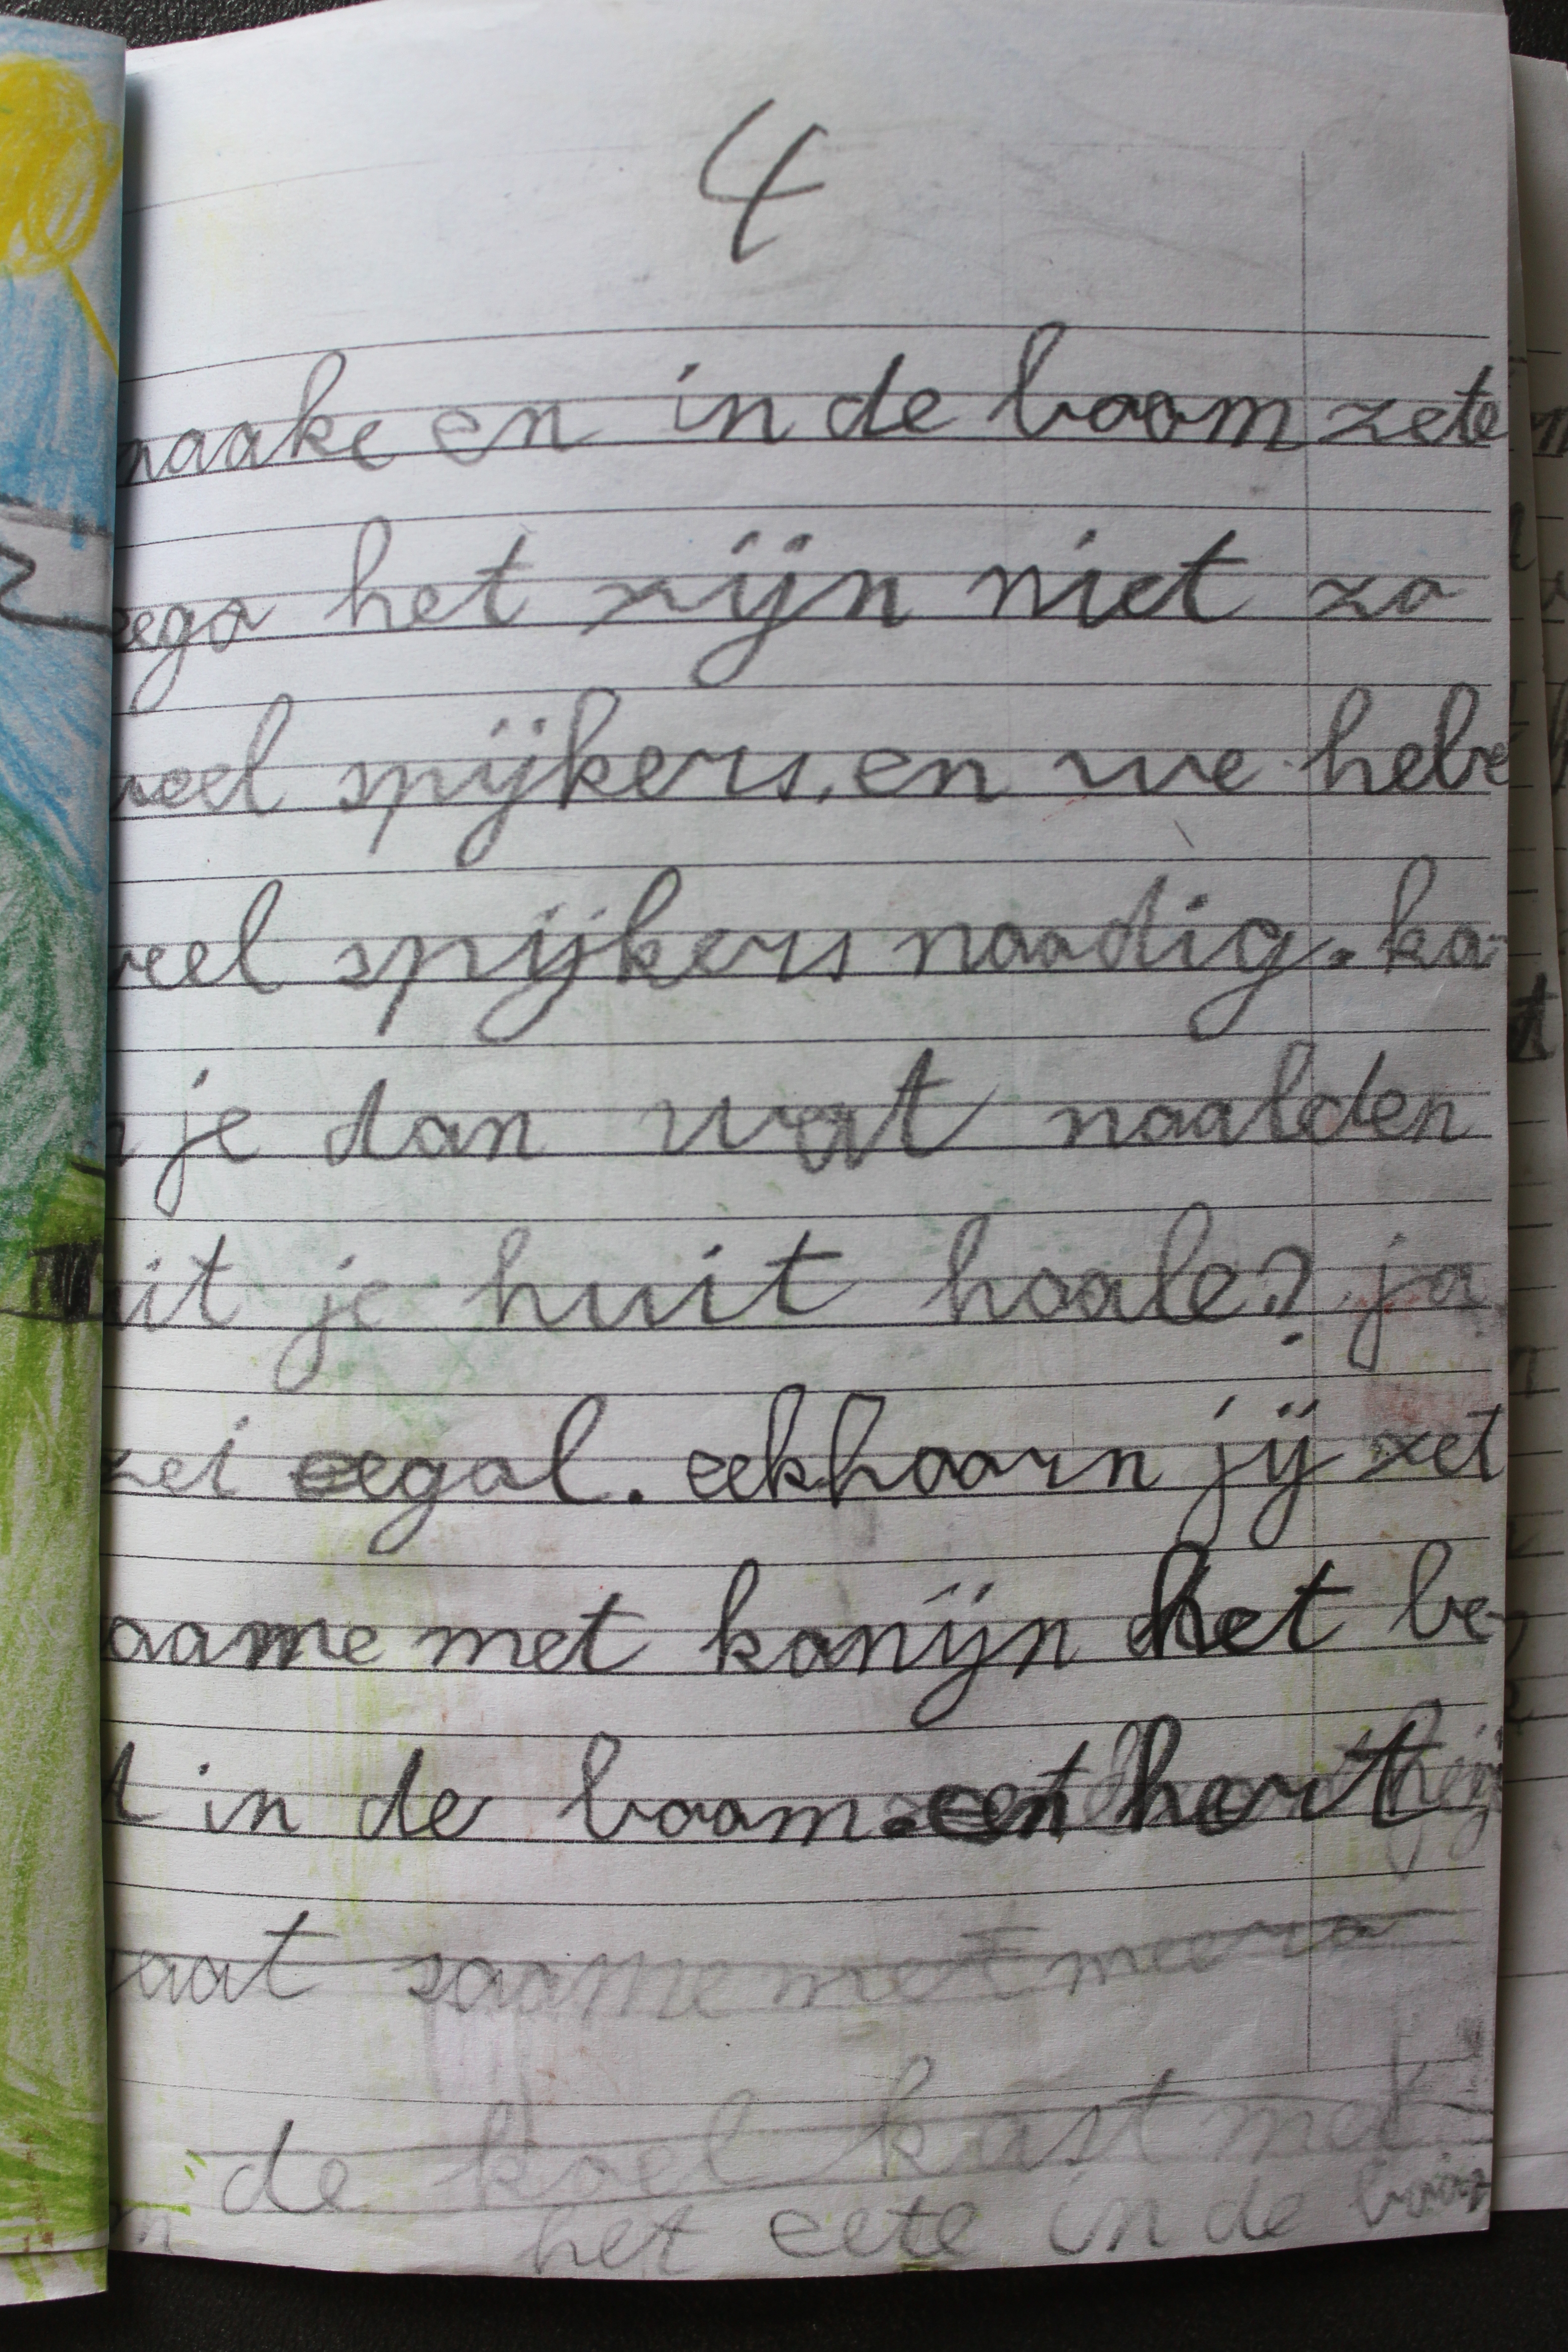 4
naake en in de boom zete
zega het zijn niet zo
veel spijkers, en we hebe
veel spijkers noodig. ka-
n je dan wat naalden
uit je huit haale? ja
zei eegal. eekhoorn jij zet
saame met konijn het be-
d in de boom. en hert
gaat saame met meera
de koel kast met
het eete in de boom